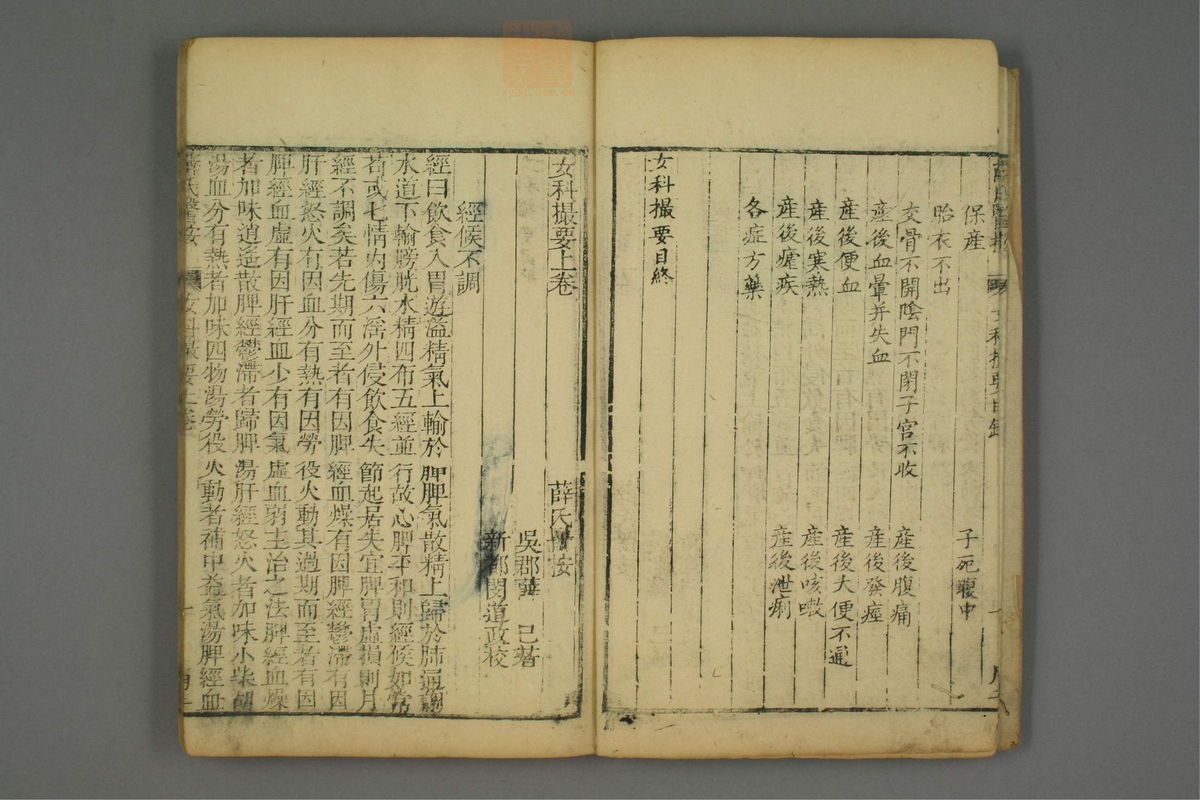 保産
子死腹中
胎衣不出
交骨不開陰門不閉子宮不收
産後腹痛
産後血暈并失血
産後發痙
産後便血
産後大便不通
産後寒熱
産後咳嗽
産後瘧疾
産後泄痢
各症方藥
女科撮要目終
女科撮要上卷
薛氏醫按
吳郡薛 己著
新都閔道政校
經候不調
經曰飲食入胃遊溢精氣上輸於脾脾氣散精上歸於肺通調
水道下輸膀胱水精四布五經並行故心脾平和則經候如常
苟或七情內傷六淫外侵飲食失節起居失宜脾胃虛損則月
經不調矣若先期而至者有因脾經血燥有因脾經鬱滯有因
肝經怒火有因血分有熱有因勞役火動其過期而至者有因
脾經血虛有因肝經血少有因氣虛血弱主治之法脾經血燥
者加味逍遙散脾經鬱滯者歸脾湯肝經怒火者加味小柴胡
湯血分有熱者加味四物湯勞役火動者補中益氣湯脾經血
薛氏醫按
女科撮要上卷